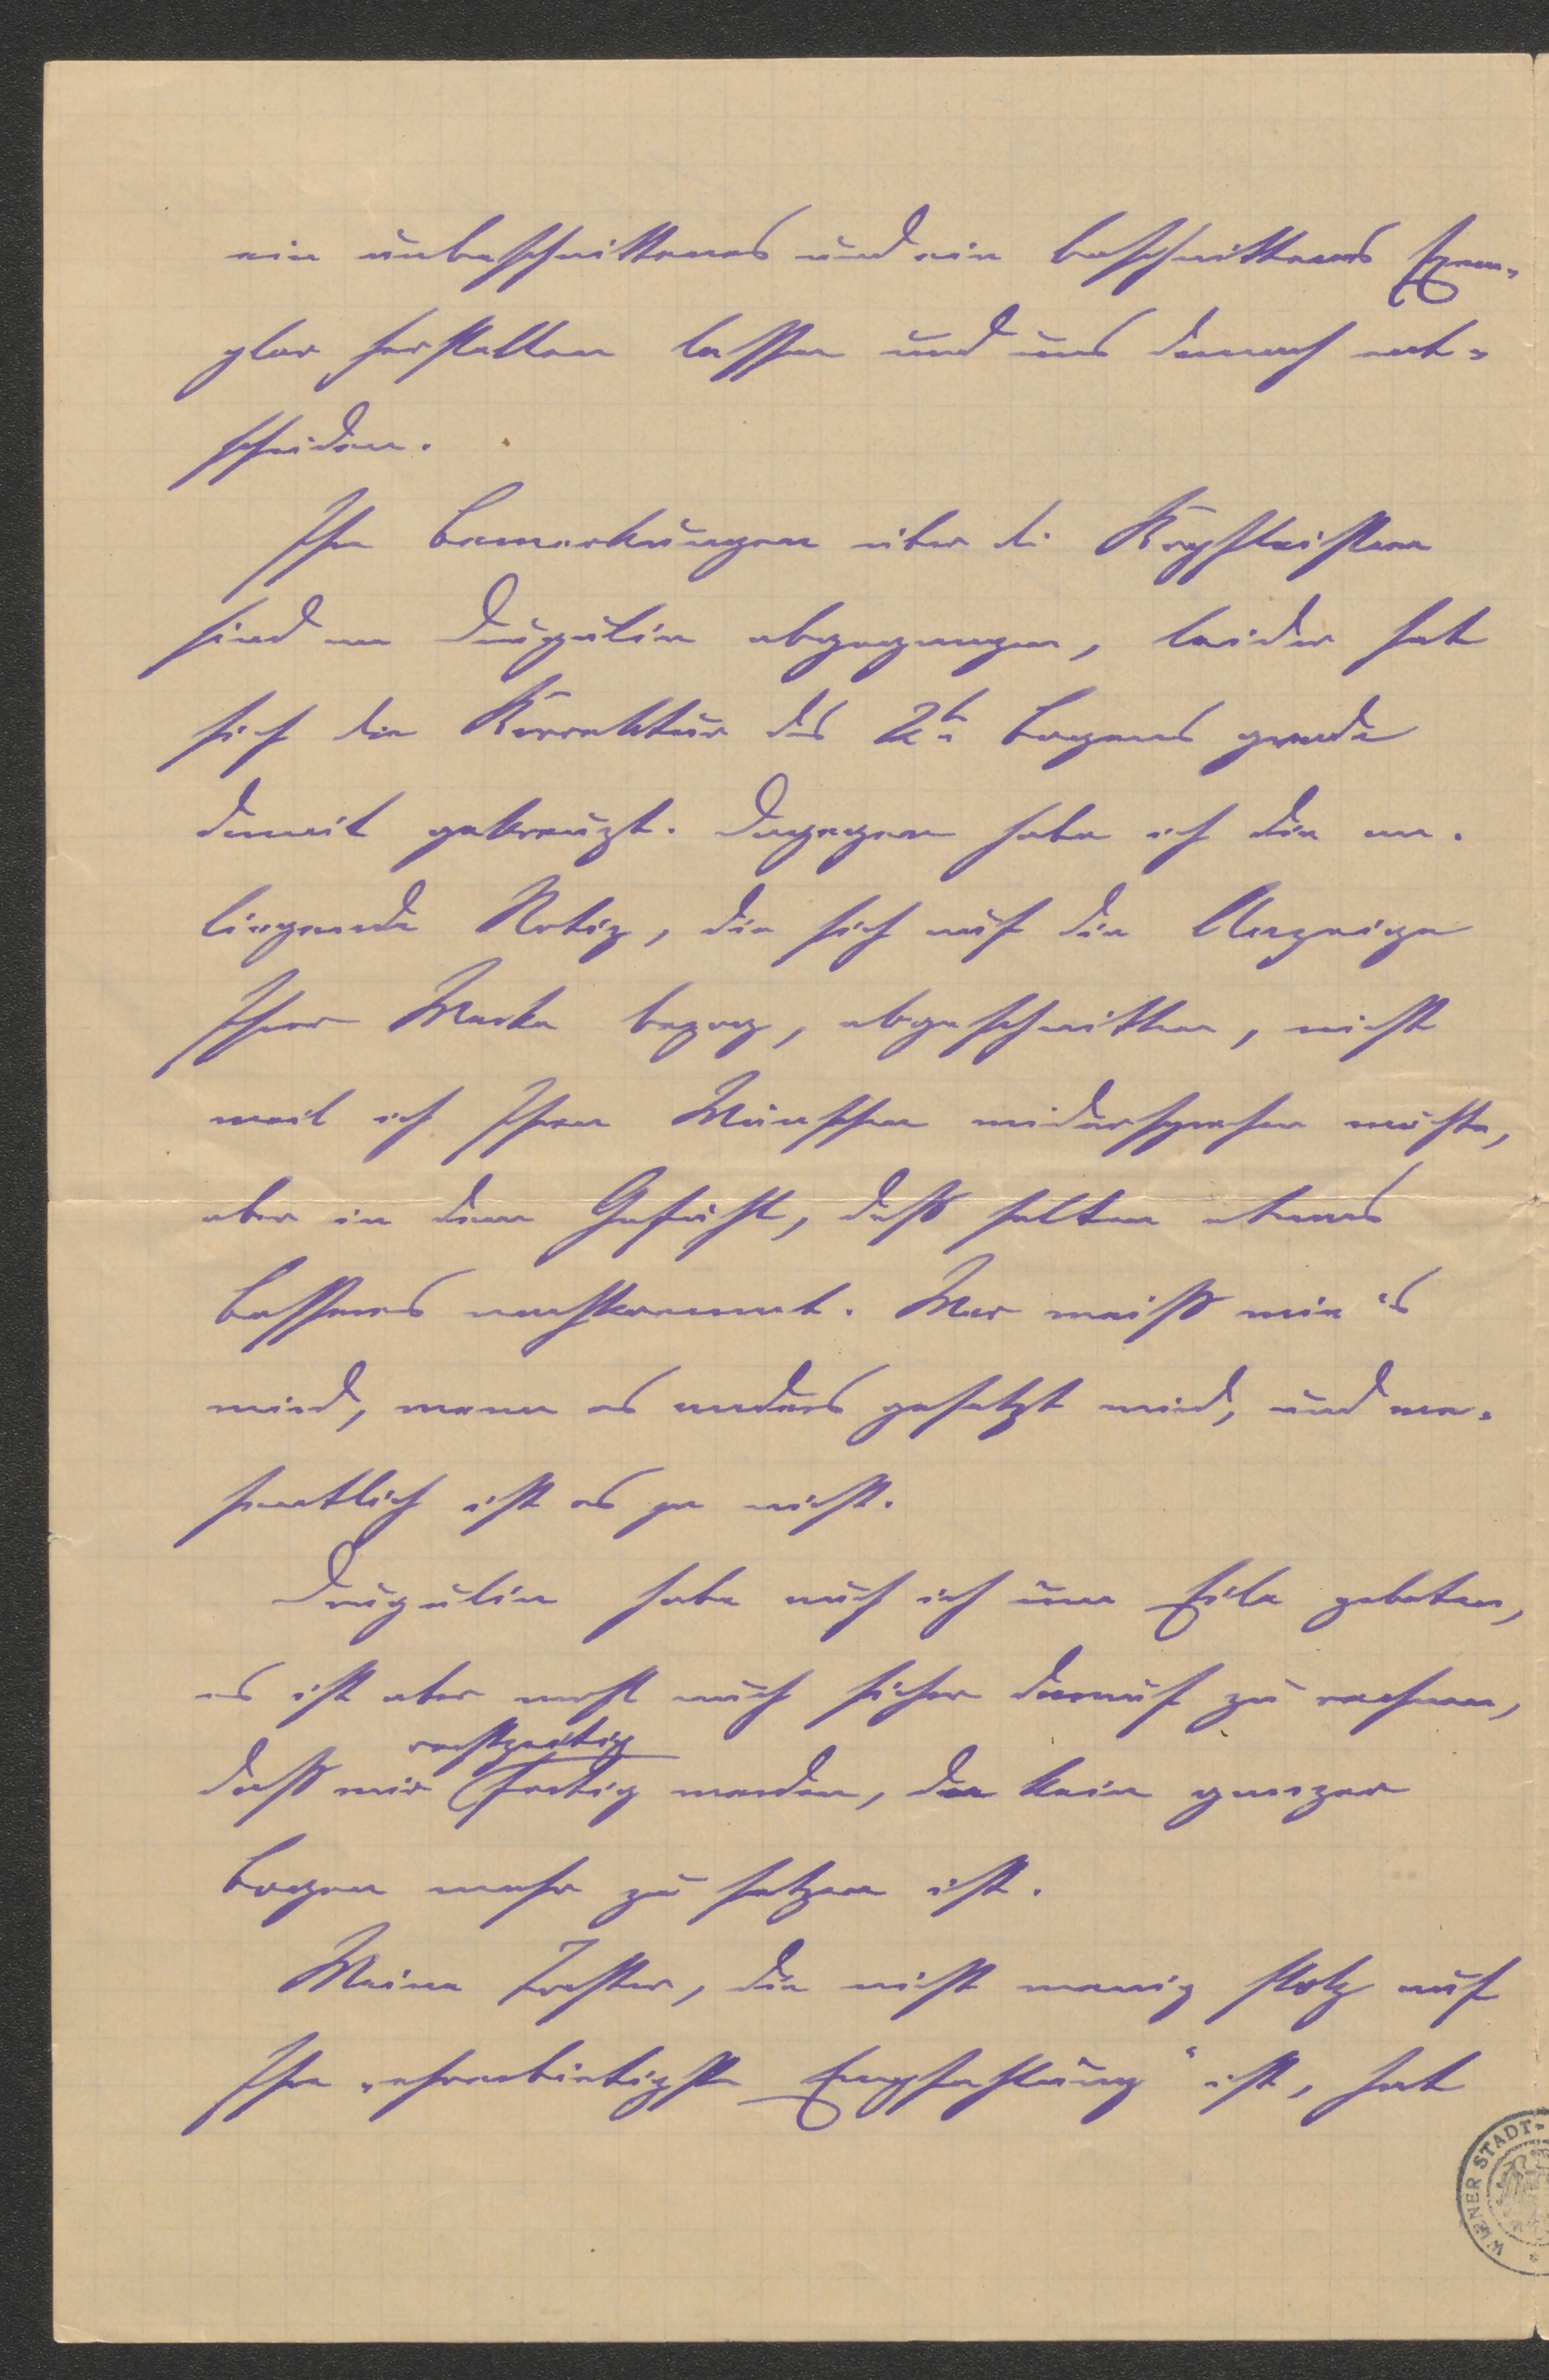 ein unbeschnittenes und ein beschnittenes Exem-
plar herstellen lassen und uns danach ent-
scheiden.
Ihre Bemerkungen über die Kopfleisten
sind an Drugulin abgegangen, leider hat
sich die Korrektur des 2ten Bogens gerade
damit gekreuzt. Dagegen habe ich die an-
liegende Notiz, die sich auf die Anzeige
Ihrer Werke bezog, abgeschnitten, nicht
weil ich Ihren Wünschen widersprechen möchte,
aber in dem Gefühl, daß selten etwas
Besseres nachkommt. Wer weiß wie es
wird, wenn es anders gesetzt wird, und we-
sentlich ist es ja nicht.
Drugulin habe auch ich um Eile gebeten,
es ist aber wohl auch sicher darauf zu rechnen,
rechtzeitig
daß wir fertig werden, da kein ganzer
Bogen mehr zu setzen ist.
Meine Tochter, die nicht wenig stolz auf
Ihre „ehrerbietigste Empfehlung“ ist, hat
WIENER STADT-